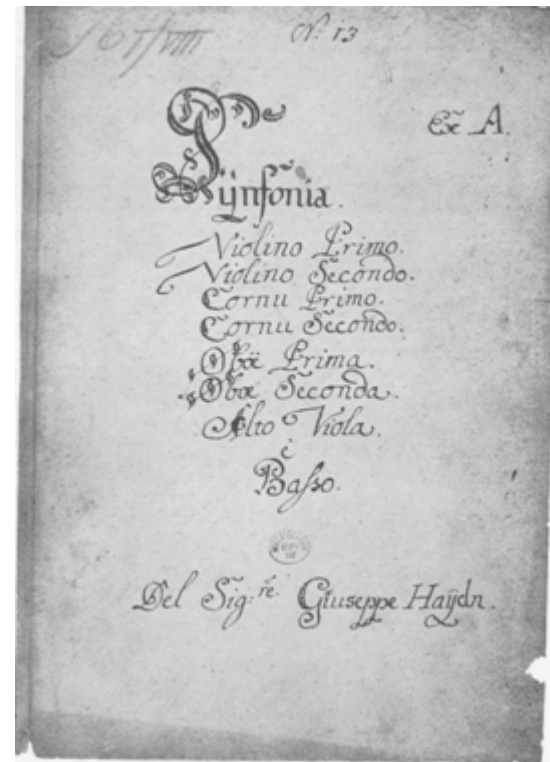 N: 13
Ex A.
Sÿnfonia.
Violino Primo.
Violino Secondo.
Cornu Primo.
Cornu Secondo.
Oboë Prima.
Oboe Seconda.
Alto Viola.
è
Basso.
Del Sig:re Giuseppe Haÿdn.